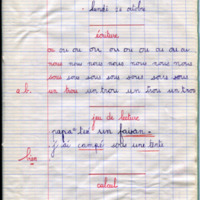 lundi 26 octobre
écriture
ou ou ou ou ou ou ou ou ou
nous nous nous nous nous nous
sous sous sous sous sous sous
a.b. un trou un trou un trou un trou
jeu de lecture
papa tue un faisan.
j'ai campé sous une tente
bien
calcul